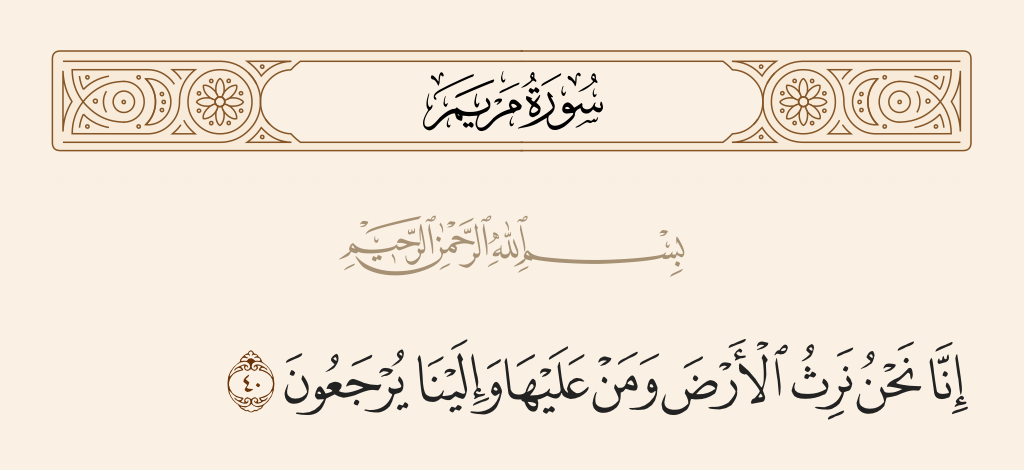 سُورَةُ مَرْيَمَ
بِسْمِ ٱللَّهِ ٱلرَّحْمَٰنِ ٱلرَّحِيمِ
إِنَّا نَحْنُ نَرِثُ ٱلْأَرْضَ وَمَنْ عَلَيْهَا وَإِلَيْنَا يُرْجَعُونَ ٤٠